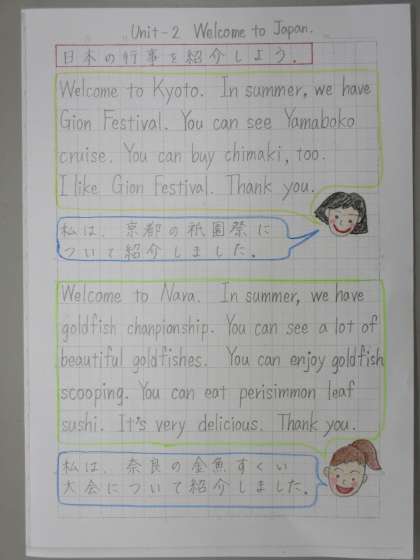 Unit-2 Welcome to Japan.
日本の行事を紹介しよう。
Welcome to Kyoto. In summer, we have
Gion Festival. You can see Yamaboko
cruise. You can buy chimaki, too.
I like Gion Festival. Thank you.
私は、京都の祇園祭に
ついて紹介しました。
Welcome to Nara. In summer, we have
goldfish chanpionship. You can see a lot of
beautiful goldfishes. You can enjoy goldfish
scooping. You can eat perisimmon leaf
sushi. It's very delicious. Thank you.
私は、奈良の金魚すくい
大会について紹介しました。